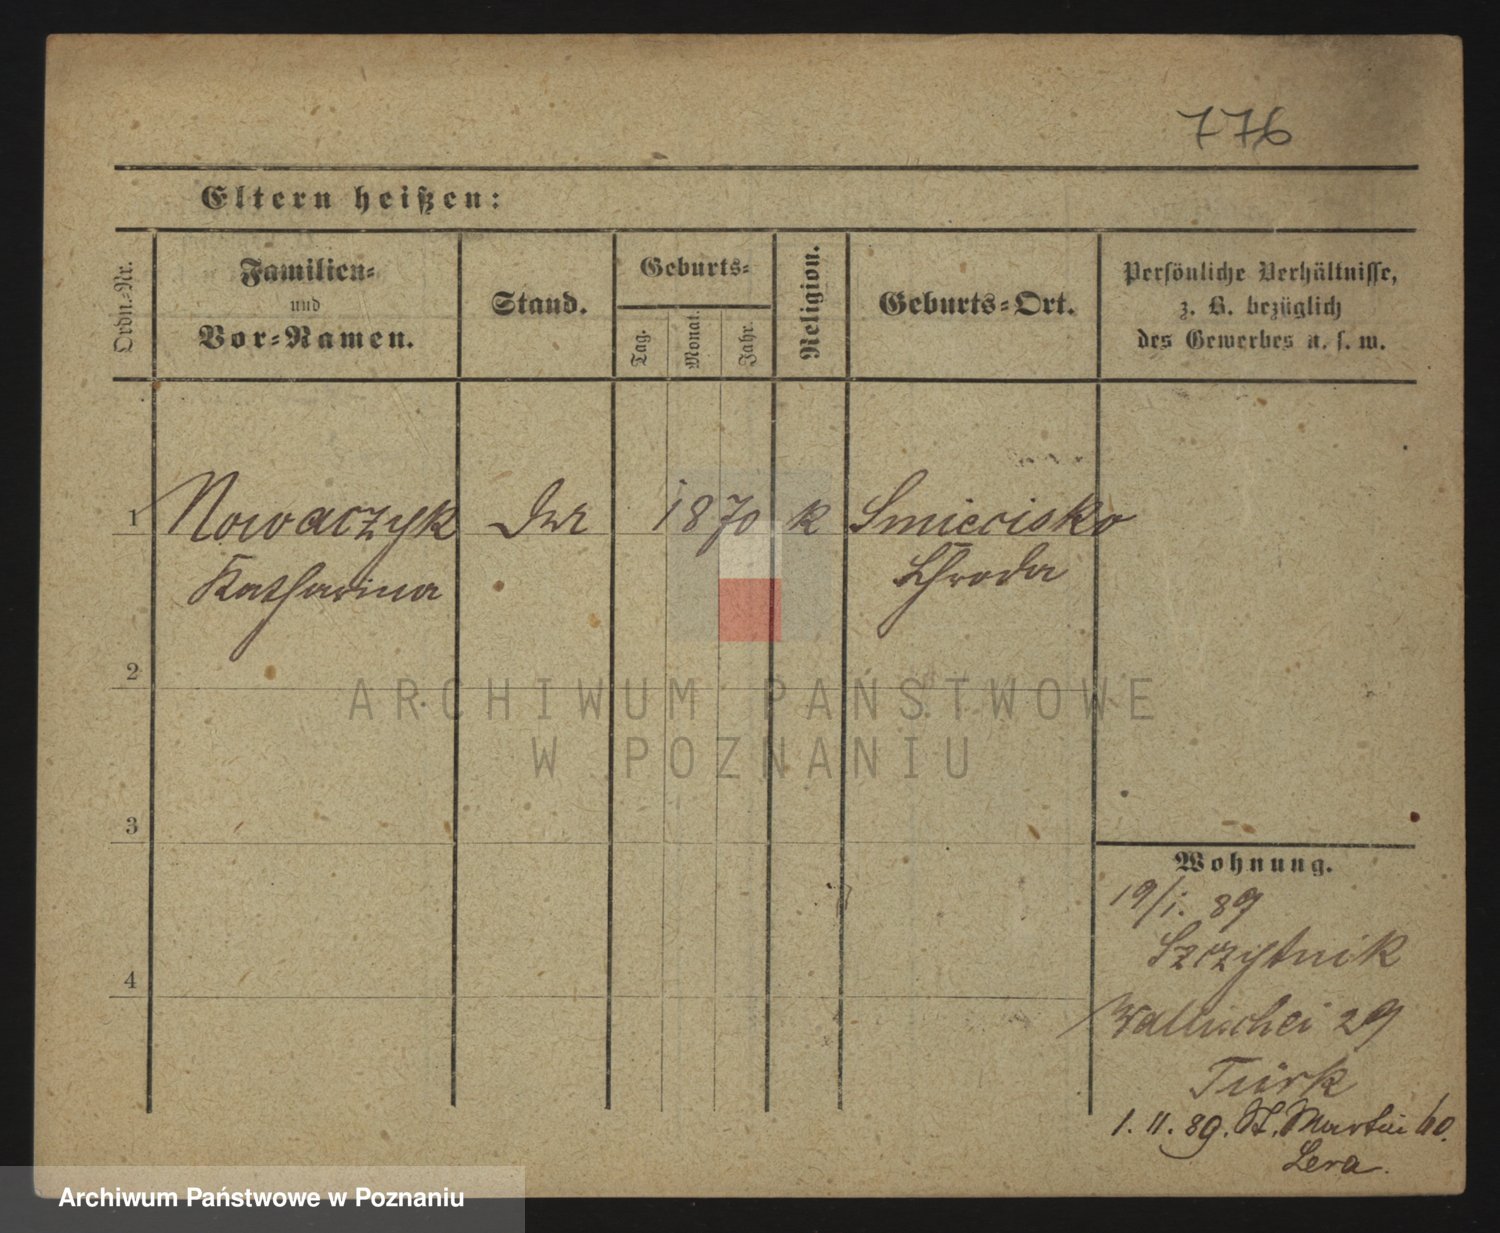 776
Eltern heißen:
Ordn.-Nr.
Familien-
und
Vor-Namen.
Stand.
Geburts-
Tag.
Monat.
Jahr.
Religion.
Geburts-Ort.
Persönliche Verhältnisse,
z. B. bezüglich
des Gewerbes u. s. w.
1 Nowaczyk 1870 k Smiecisko
Katharina Schroda
2
ARCHIWUM PAŃSTWOWE
W POZNANIU
3
Wohnung.
19/1. 89
Szczytnik
4
Wallischei 29
Türk
1. 11. 89. St. Martin 60.
Lera.
Archiwum Państwowe w Poznaniu